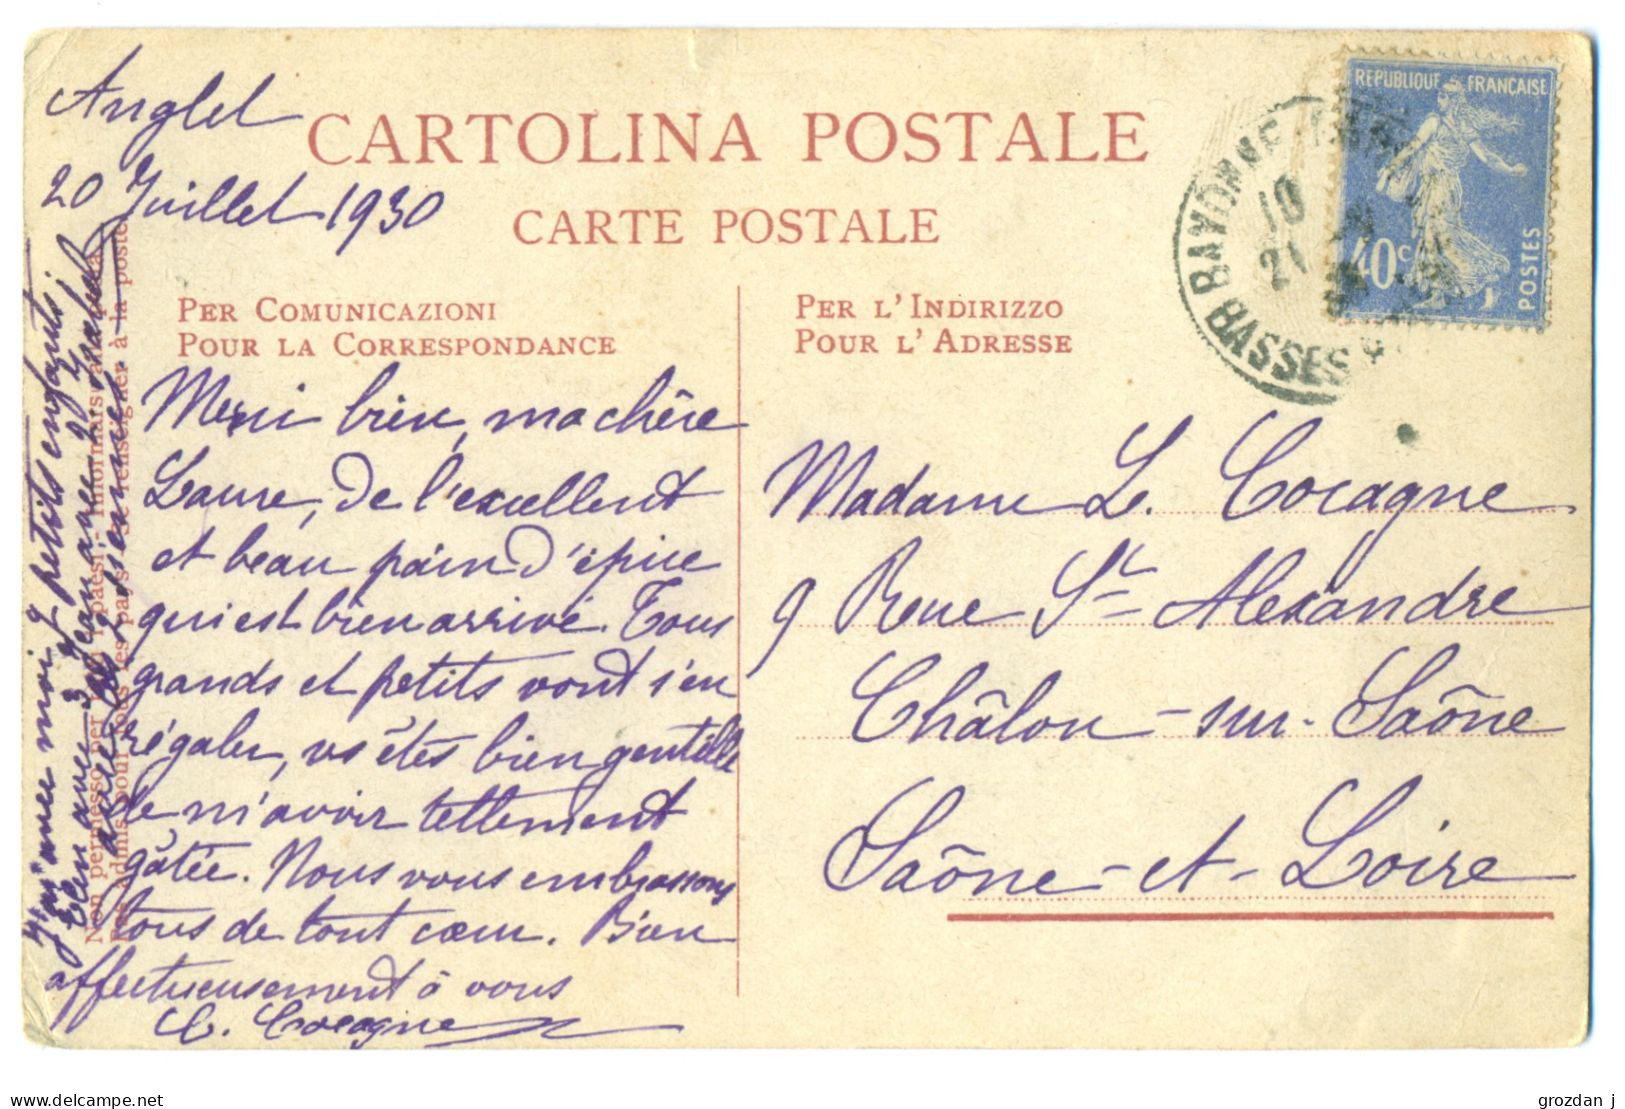 Anglet
20 Juillet 1930
CARTOLINA POSTALE
CARTE POSTALE
PER COMUNICAZIONI
POUR LA CORRESPONDANCE
PER L'INDIRIZZO
POUR L'ADRESSE
REPUBLIQUE FRANÇAISE
40c
POSTES
BAYONNE
BASSES
10
21
Merci bien, ma chère
Laure, de l'excellent
et beau pain d'épice
qui est bien arrivé. Tous
grands et petits vont s'en
régaler, vs êtes bien gentille
de m'avoir tellement
gâtée. Nous vous embrassons
tous de tout cœur. Bien
affectueusement à vous
C. Cocagne
Madame L. Cocagne
9 Rue St Alexandre
Châlon-sur-Saône
Saône-et-Loire
avec moi 7 petits enfants;
Jean avec 2
Non permesso per i paesi
admis pour tous les pays se renseigner à la poste
grozdan j